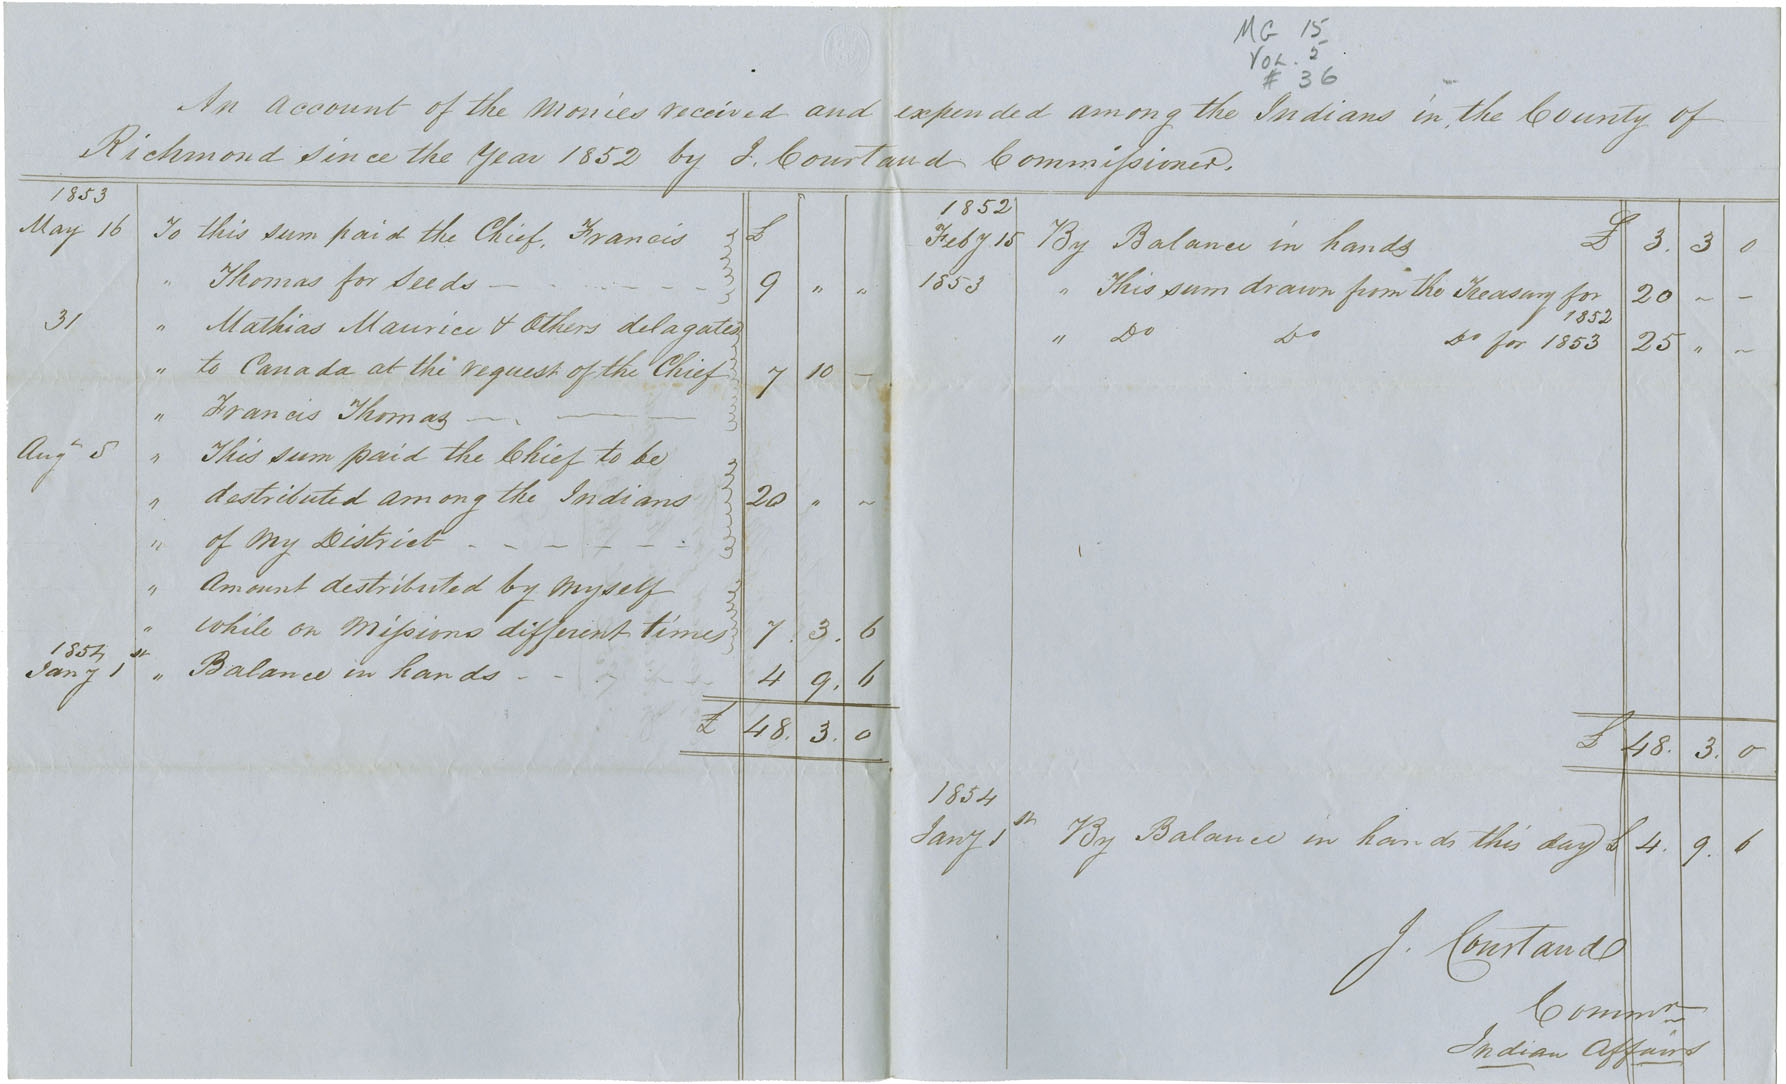 MG 15
VOL. 5
# 36
An Account of the Monies received and expended among the Indians in the County of
Richmond since the Year 1852 by J. Courtaud Commissioner.
1853
May 16 To this sum paid the Chief, Francis £
" Thomas for Seeds - - - - - - 9 " "
31 " Mathias Maurice & Others delagates
" to Canada at the request of the Chief 7 10 -
" Francis Thomas - - -
Augt 5 " This sum paid the Chief to be
" destributed among the Indians 20 " ~
" of My District - - - - - -
" Amount destributed by Myself
" while on Missions different times 7. 3. 6
1854
Jany 1st " Balance in hands - - - - - 4 9. 6
£ 48. 3. 0
1852
Feby 15 By Balance in hands £ 3. 3 0
1853 " This sum drawn from the Treasury for 20 ~ -
1852
" Do Do Do for 1853 25 " ~
£ 48. 3. 0
1854
Jany 1st By Balance in hands this day £ 4. 9. 6
J. Courtaud
Commr
Indian Affairs